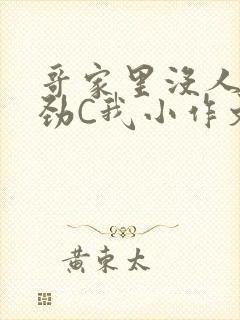 哥家里没人
劲C我小作文
黄东太